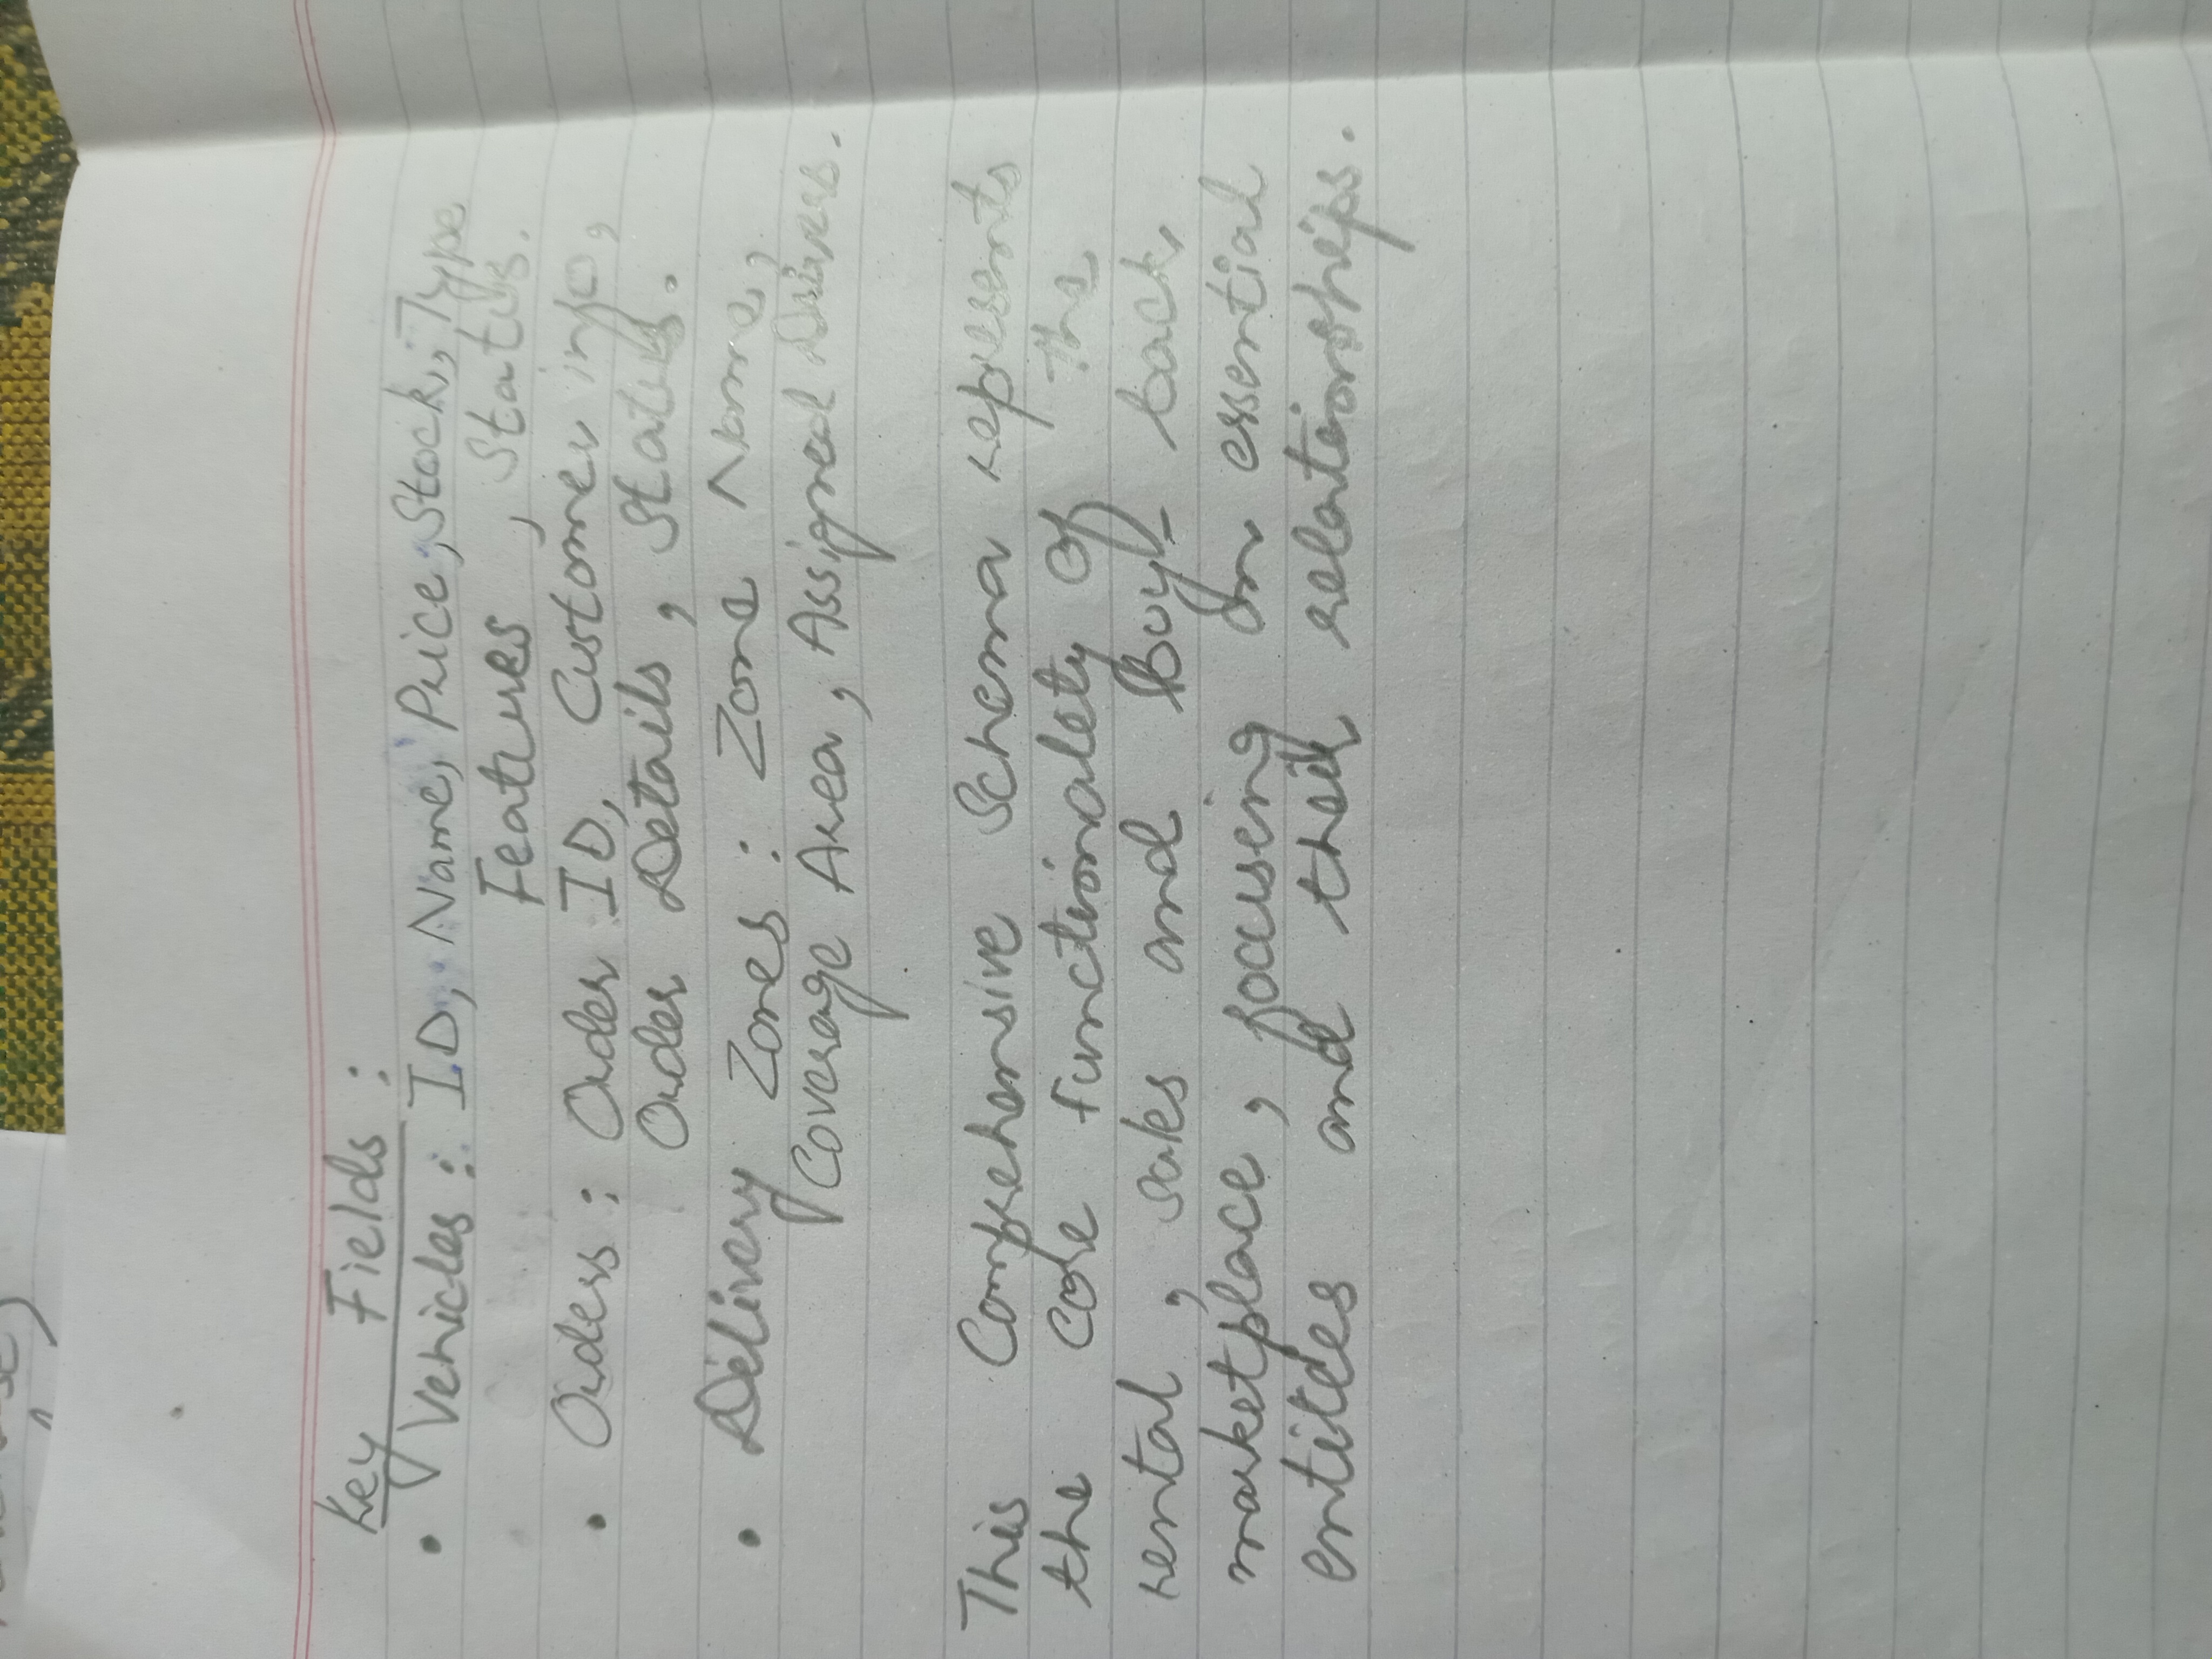 Key Fields :
• Vehicles : ID, Name, Price, Stock, Type
Features , Status.
• Orders : Order ID, Customer info,
Order Details , Status.
• Delivery Zones : Zone Name,
Coverage Area, Assigned Drivers.
This Comprehensive Schema represents
the core functionality of the
rental , sales and Buy- back
marketplace , focusing on essential
entities and their relationships.